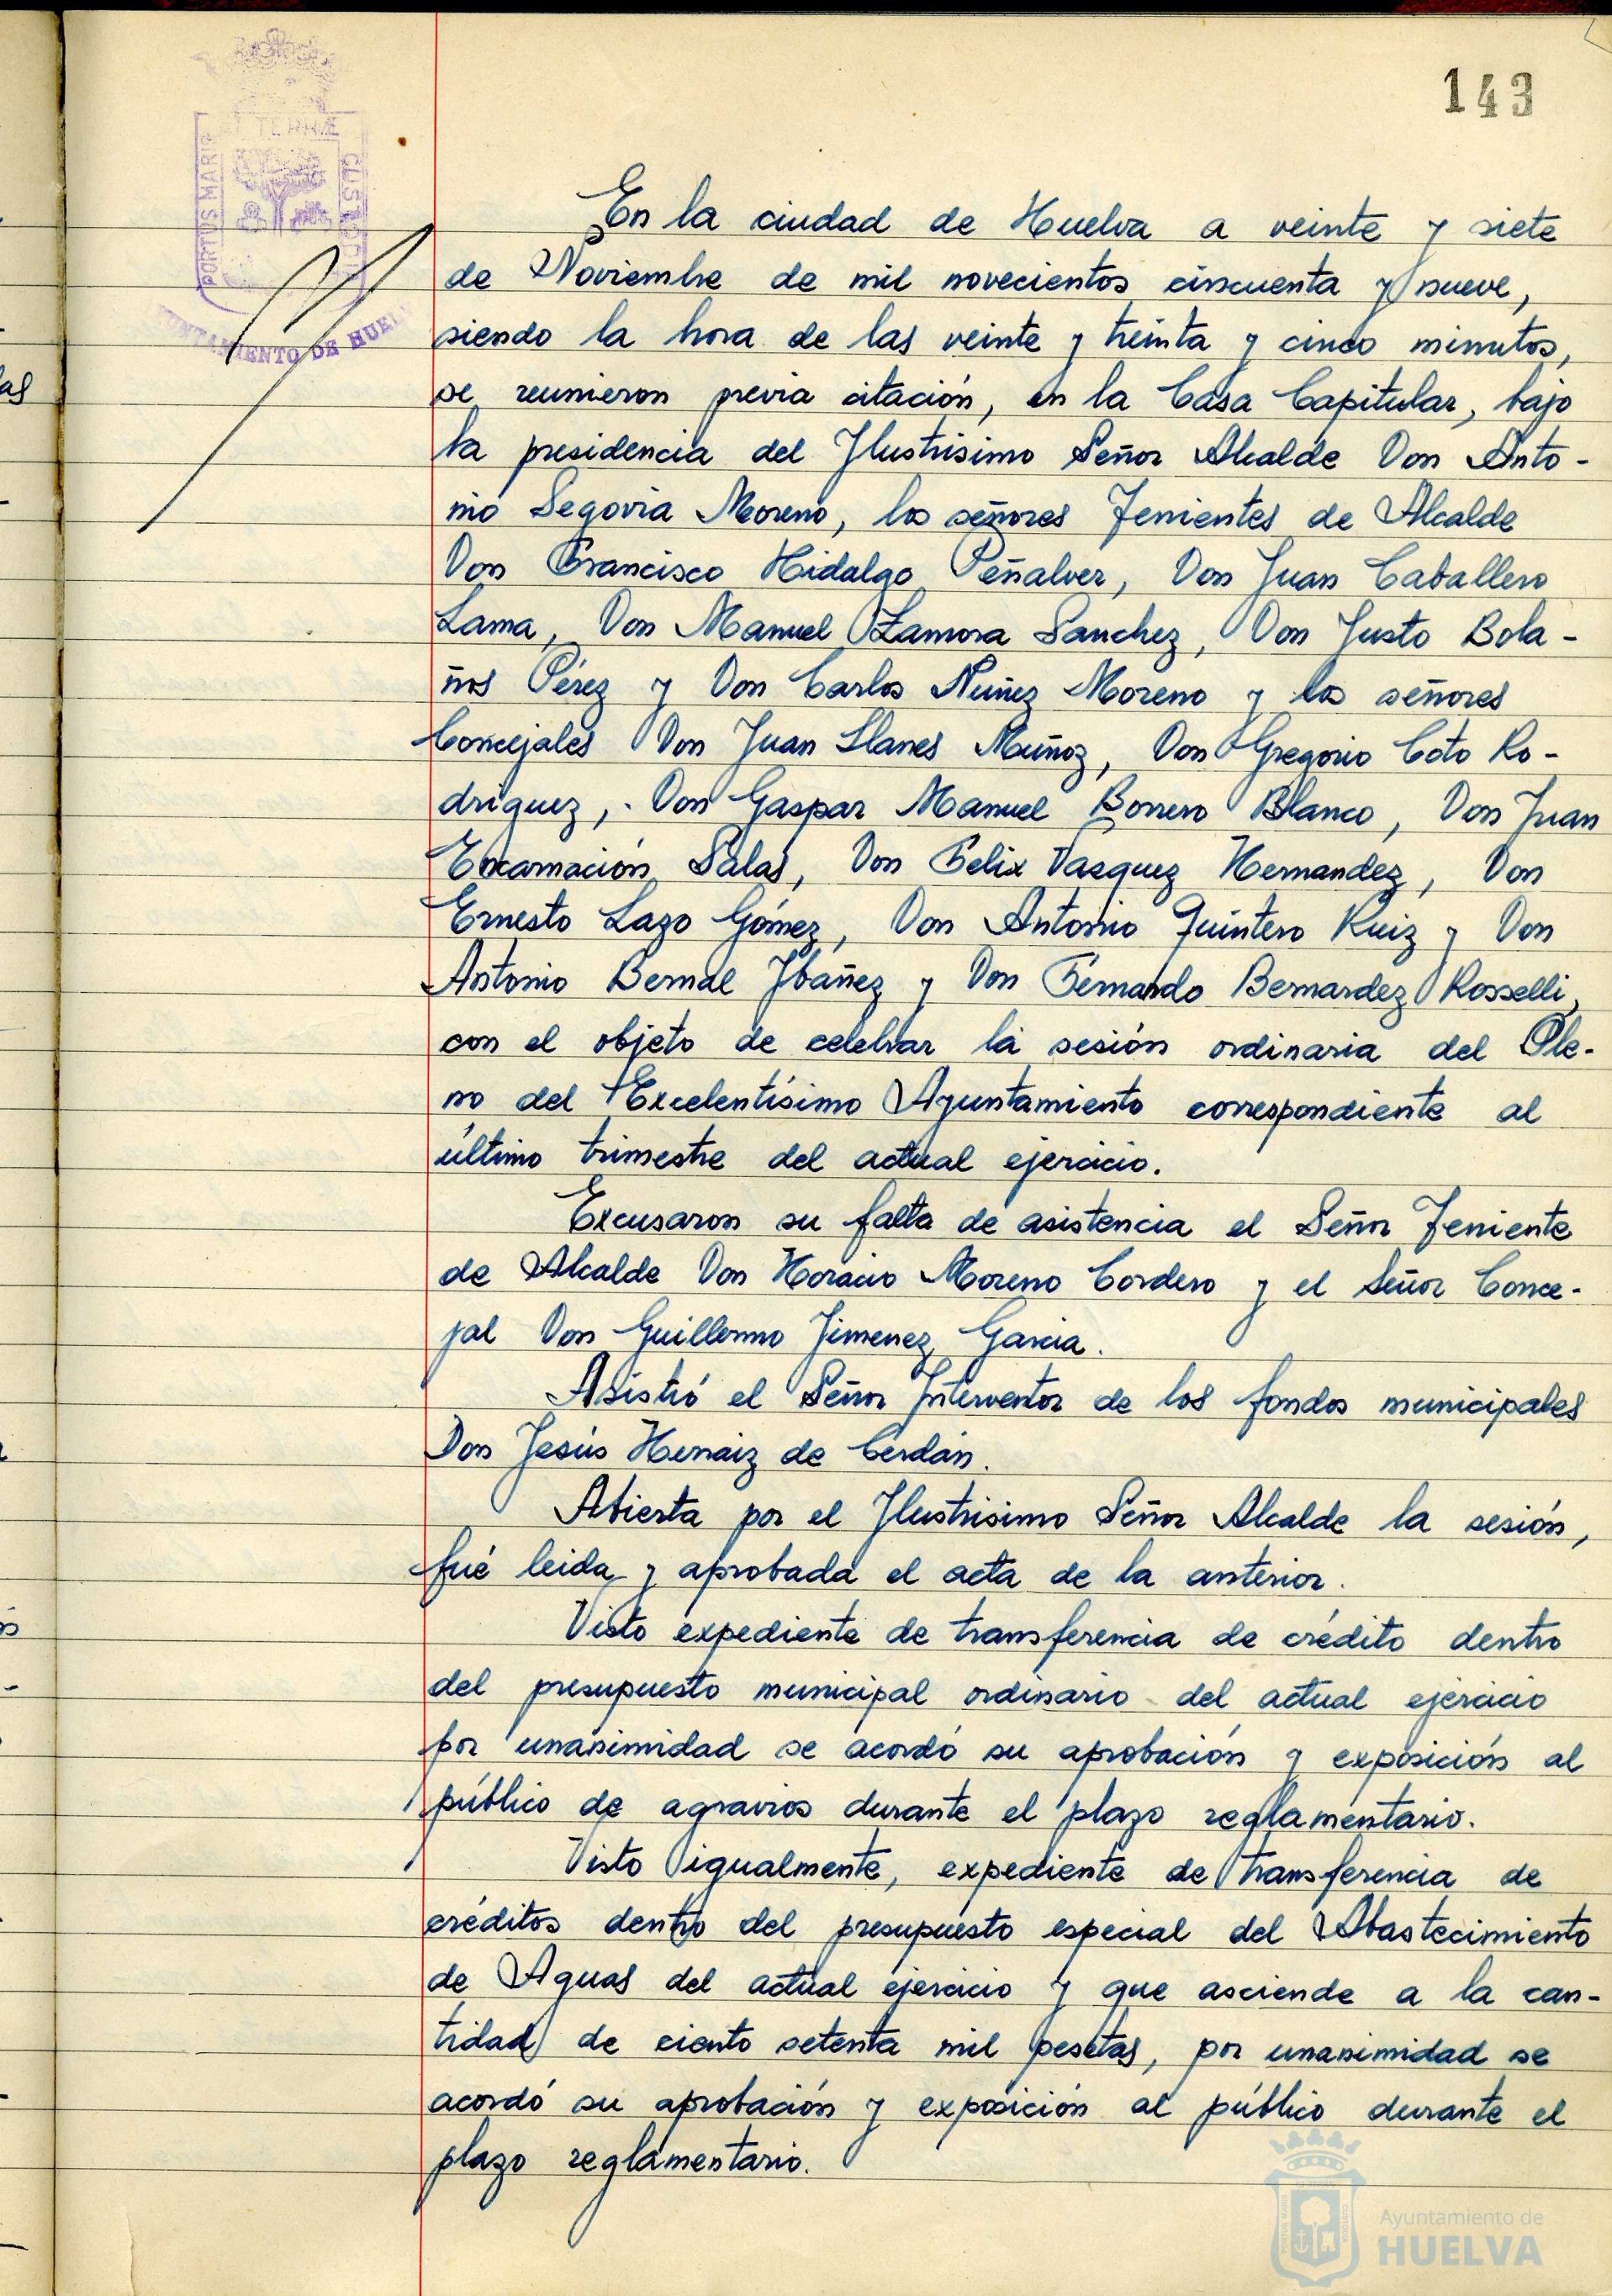 143
PORTUS MARIS ET TERRÆ CUSTODIA
AYUNTAMIENTO DE HUELVA
En la ciudad de Huelva a veinte y siete
de Noviembre de mil novecientos cincuenta y nueve,
siendo la hora de las veinte y treinta y cinco minutos,
se reunieron previa citación, en la Casa Capitular, bajo
la presidencia del Ilustrisimo Señor Alcalde Don Anto-
nio Segovia Moreno, los señores Tenientes de Alcalde
Don Francisco Hidalgo Peñalver, Don Juan Caballero
Lama, Don Manuel Zamora Sanchez, Don Justo Bola-
ños Pérez y Don Carlos Nuñez Moreno y los señores
Concejales Don Juan Llanes Muñoz, Don Gregorio Coto Ro-
driguez, Don Gaspar Manuel Borrero Blanco, Don Juan
Encarnación Salas, Don Felix Vasquez Hernandez, Don
Ernesto Lazo Gómez, Don Antonio Quintero Ruiz y Don
Antonio Bernal Ibañez y Don Fernando Bernardez Rosselli,
con el objeto de celebrar la sesión ordinaria del Ple-
no del Excelentísimo Ayuntamiento correspondiente al
último trimestre del actual ejercicio.
Excusaron su falta de asistencia el Señor Teniente
de Alcalde Don Horacio Moreno Cordero y el Señor Conce-
jal Don Guillermo Jimenez Garcia.
Asistió el Señor Interventor de los fondos municipales
Don Jesús Hernaiz de Cerdán.
Abierta por el Ilustrisimo Señor Alcalde la sesión,
fué leida y aprobada el acta de la anterior.
Visto expediente de transferencia de crédito dentro
del presupuesto municipal ordinario del actual ejercicio
por unanimidad se acordó su aprobación y exposición al
público de agravios durante el plazo reglamentario.
Visto igualmente, expediente de transferencia de
créditos dentro del presupuesto especial del Abastecimiento
de Aguas del actual ejercicio y que asciende a la can-
tidad de ciento setenta mil pesetas, por unanimidad se
acordó su aprobación y exposición al público durante el
plazo reglamentario.
Ayuntamiento de
HUELVA